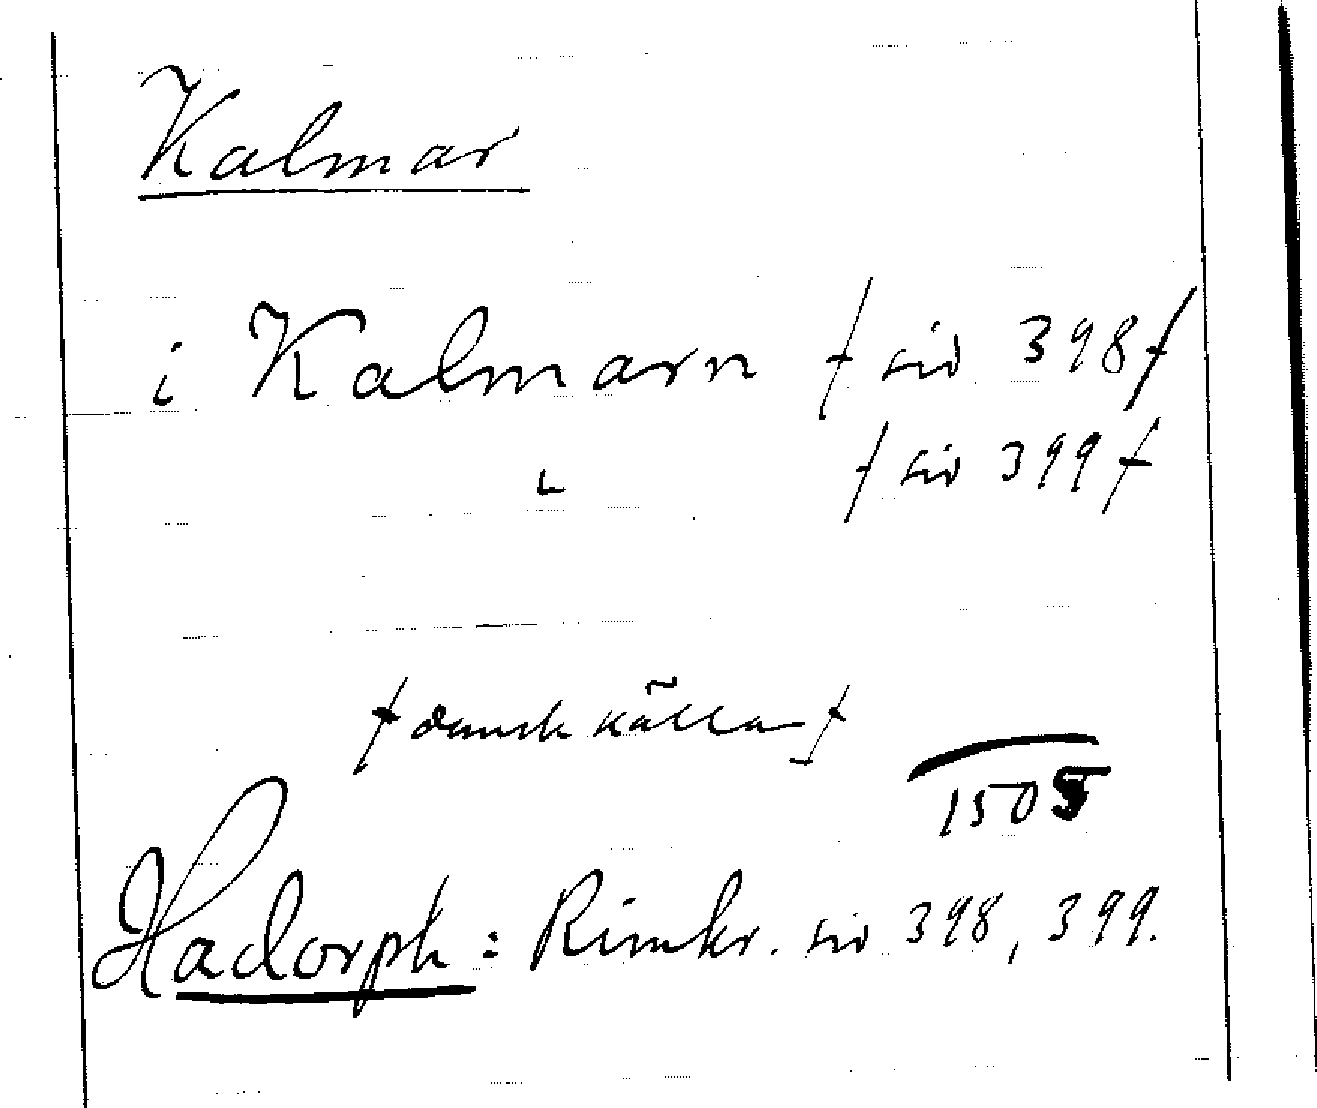 Kalmar
i Kalmarn f sid 398 f
" f sid 399 f
f dansk källa f
1505
Hadorph: Rimkr. sid 398, 399.